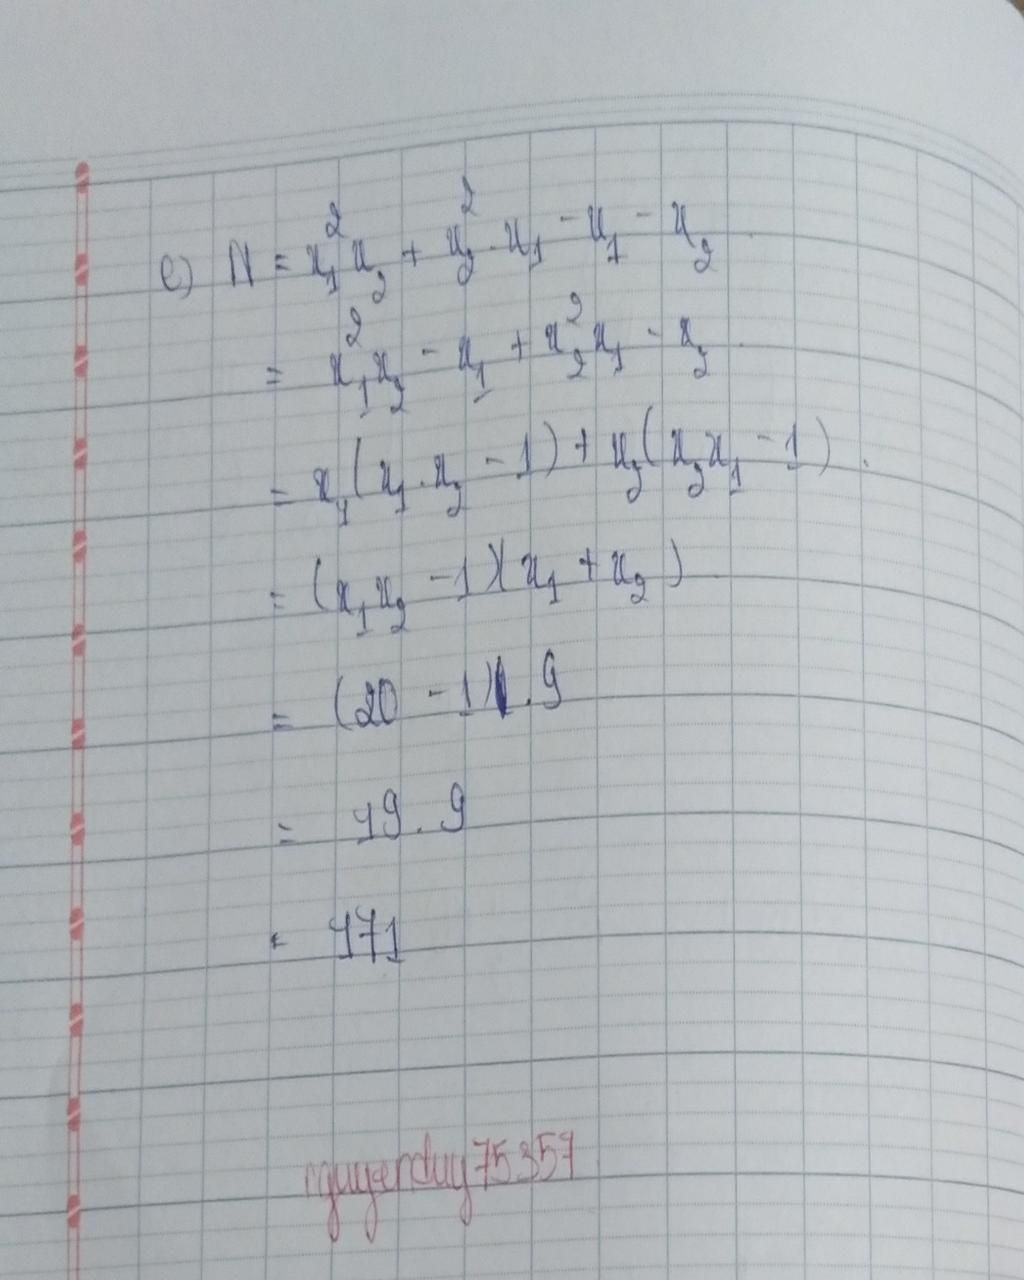 e) N = x₁²x₂ + x₂².x₁ - x₁ - x₂
= x₁²x₂ - x₁ + x₂²x₁ - x₂
= x₁(x₁.x₂ - 1) + x₂(x₂x₁ - 1).
= (x₁x₂ - 1)(x₁ + x₂)
= (20 - 1).9
= 19.9
= 171
nguyenduy75357